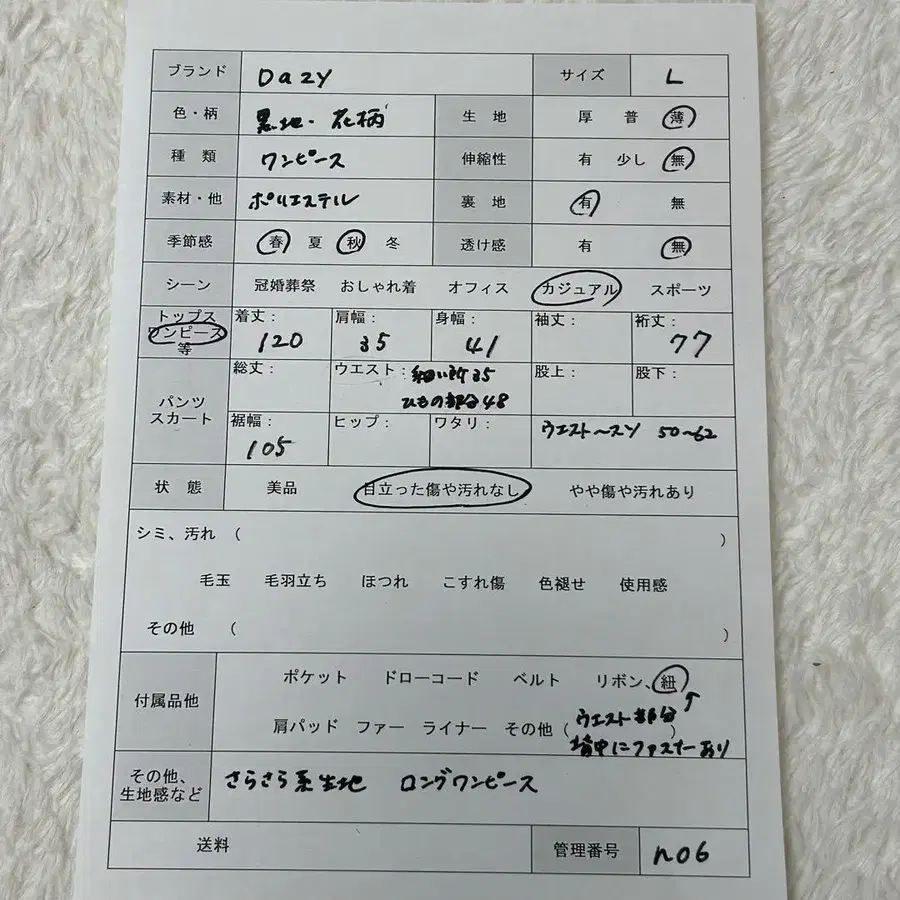 ブランド Dazy サイズ L
色・柄 黒地・花柄 生地 厚 普 薄
種類 ワンピース 伸縮性 有 少し 無
素材・他 ポリエステル 裏地 有 無
季節感 春 夏 秋 冬 透け感 有 無
シーン 冠婚葬祭 おしゃれ着 オフィス カジュアル スポーツ
トップス ワンピース 等 着丈: 120 肩幅: 35 身幅: 41 袖丈: 裄丈: 77
パンツ スカート 総丈: ウエスト: 細い所35 ひもの部分48 股上: 股下:
裾幅: 105 ヒップ: ワタリ: ウエスト〜スソ 50〜62
状態 美品 目立った傷や汚れなし やや傷や汚れあり
シミ、汚れ ( )
毛玉 毛羽立ち ほつれ こすれ傷 色褪せ 使用感
その他 ( )
付属品他 ポケット ドローコード ベルト リボン、紐
肩パッド ファー ライナー その他 ( ウエスト部分 )
背中にファスナーあり
その他、 生地感など さらさら系生地 ロングワンピース
送料 管理番号 n06